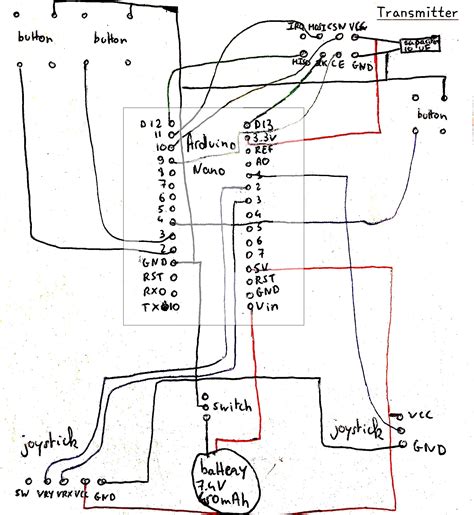 Transmitter
IRQ MOSI CSN VCC
capacitor
10 uF
button
button
MISO SCK CE GND
button
D12
11
10
9
8
7
6
5
4
3
2
GND
RST
RX0
TX0
Arduino
Nano
D13
3.3V
REF
A0
1
2
3
4
5
6
7
5V
RST
GND
Vin
switch
joystick
SW VRY VRX VCC GND
battery
7.4V
mAh
joystick
VCC
GND